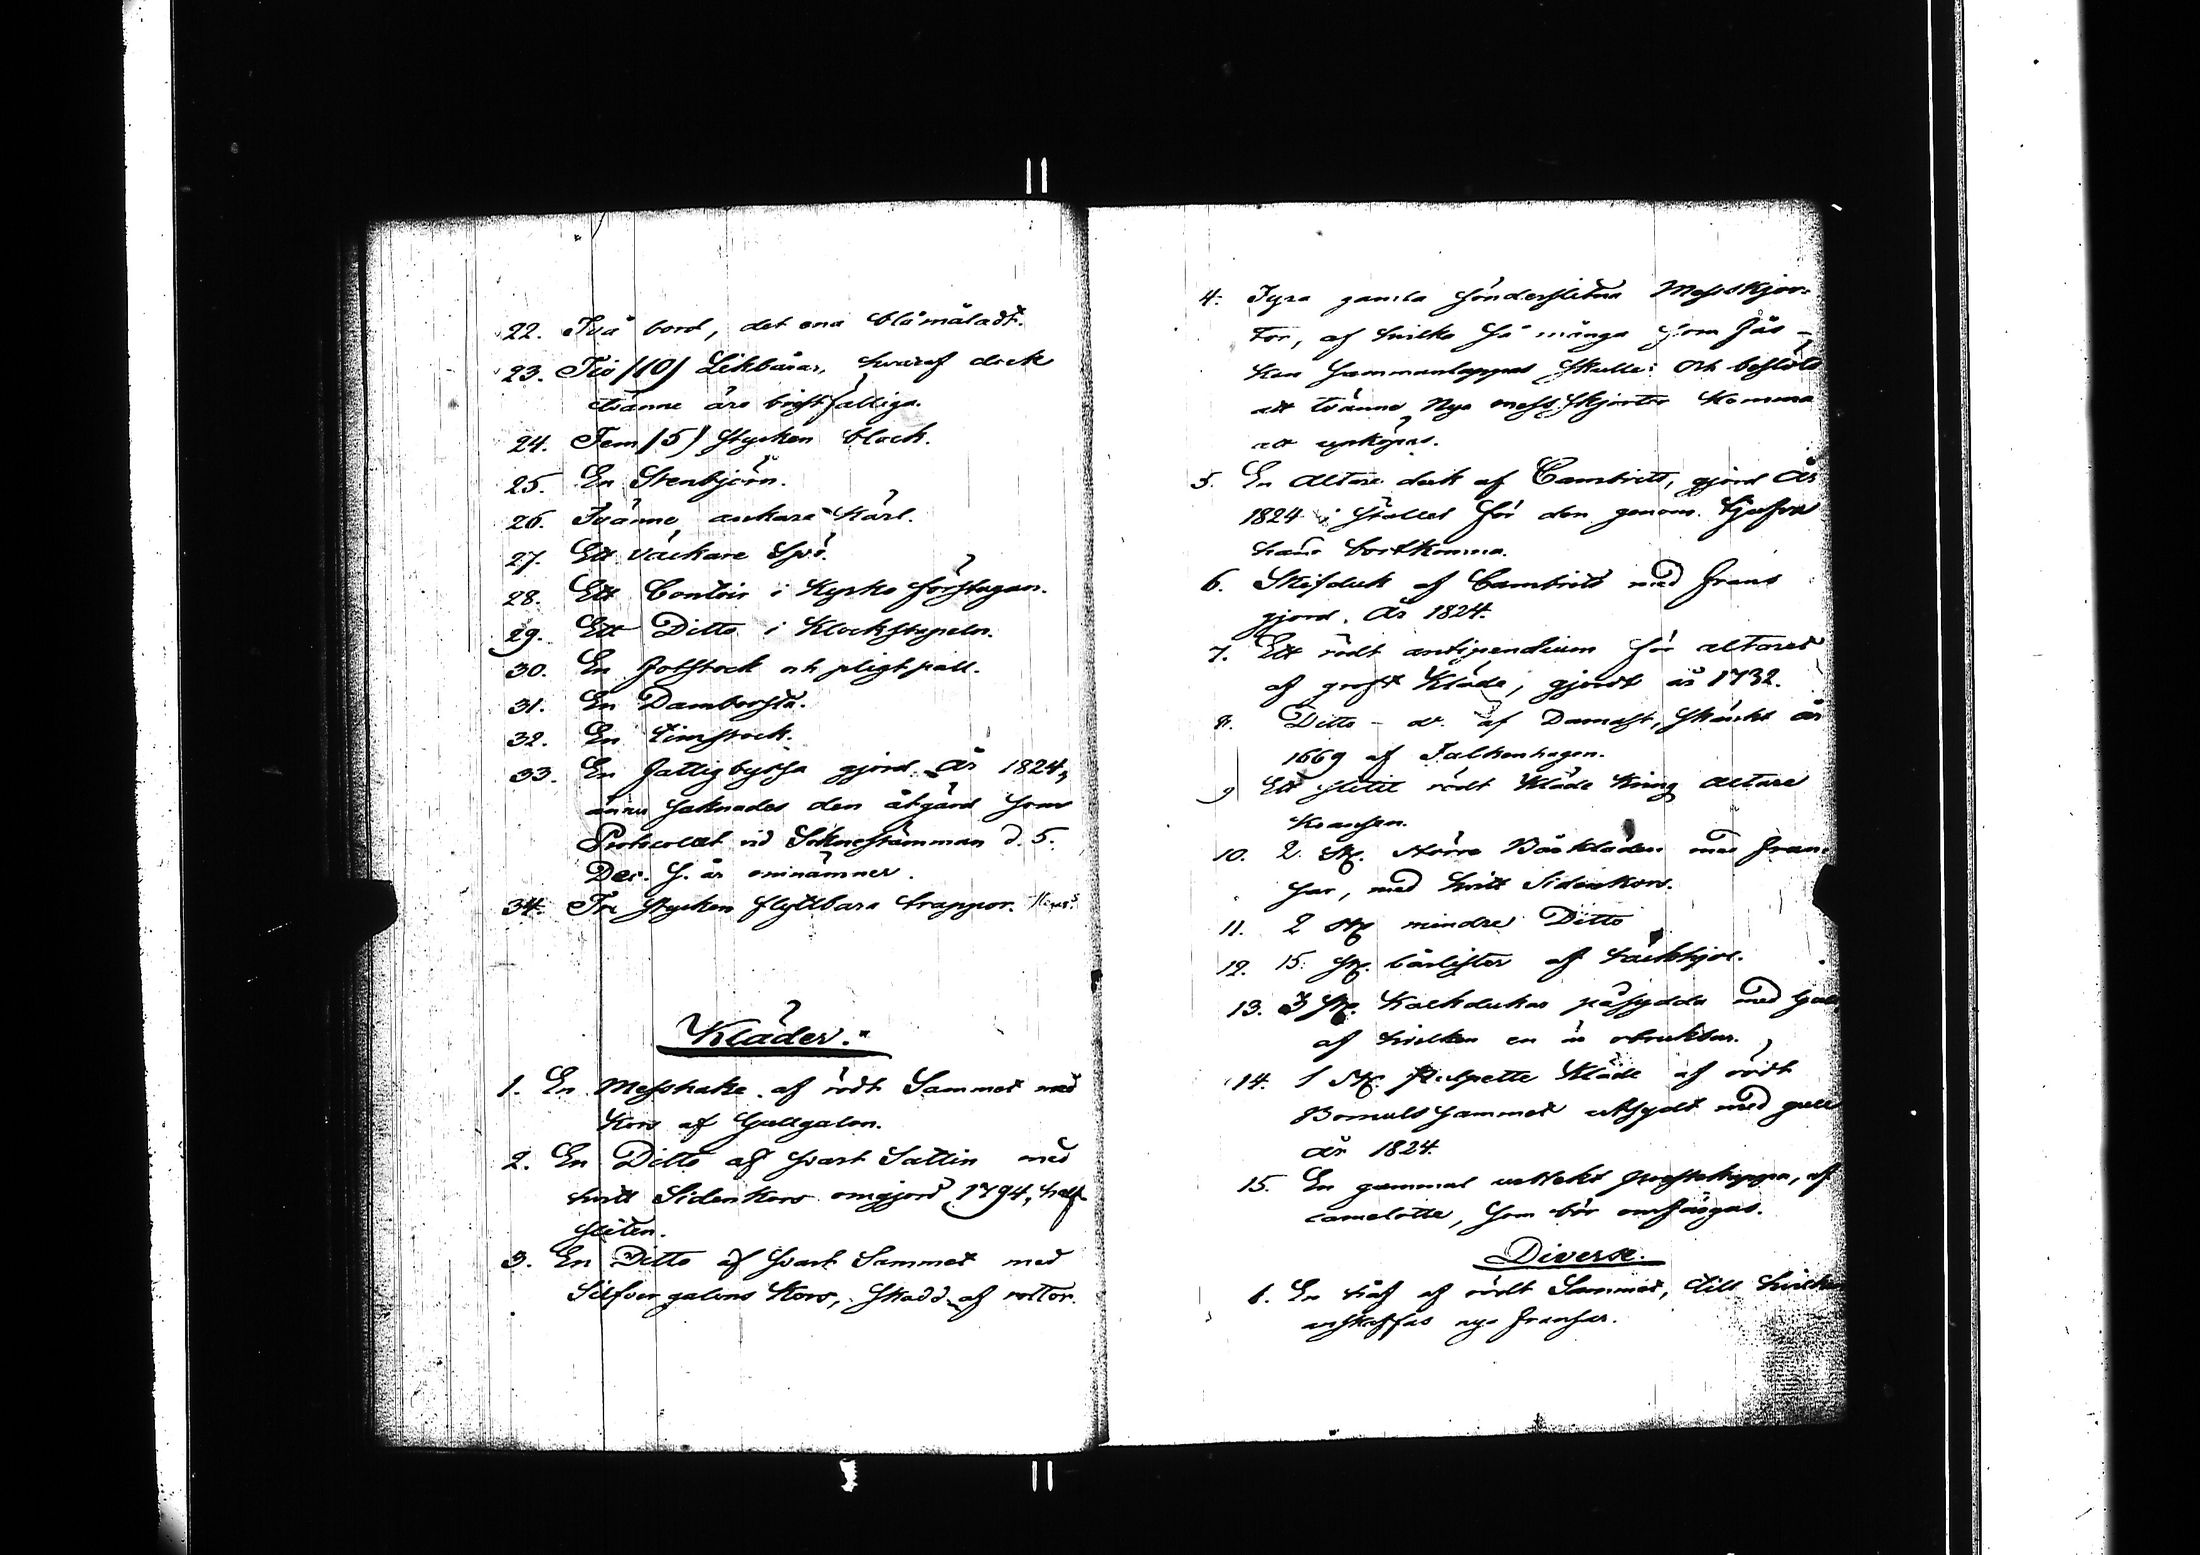 22. Två bord, det ena blåmåladt.
23. Tio /10/ Likbårar, hvaraf dock
tvänne äro bristfälliga.
24. Fem /5/ stycken block.
25. En Stenbjörn.
26. Tvänne ankare kärl.
27. Ett väckare spö.
28. Ett Contoir i Kyrko förstugan.
29. Ett Ditto i Klockstapeln.
30. En fotstock och pligtpall.
31. En Damborsta.
32. En timstock.
33. En fattigbyssa gjord År 1824,
ännu saknades den åtgärd som
Protocollet vid Soknestämman d. 5.
Dec. s. år omnämner.
34. Tre stycken flyttbara trappor.
Kläder.
1. En Messhake af rödt Sammet med
Kors af Gullgalon.
2. En Ditto af svart Sattin med
hvitt Siden Kors omgjord 1794, half
sliten.
3. En Ditto af svart Sammet med
Silfver galons Kors, skadd af rottor.
4. Fyra gamla sönderslitna Messskjor-
tor, af hvilka så många som
kan sammanlappas skulle: och beslöts
att tvänne Nya mess skjortor komma
att uppköpas.
5. En Altare duk af Cambrits, gjord År
1824 i stället för den genom tjufva
hand bortkomna.
6. Skifduk af Cambrits med frans
gjord År 1824.
7. Ett rödt antipendium för altaret
af groft Kläde, gjordt år 1732.
8. Ditto - af Damast, skänkt år
1669 af Falkenhagen.
9 Ett slitit rödt Kläde kring altare
Kransen.
10. 2 St. större Bårkläden med fran-
sar, med hvitt Sidenkors.
11. 2 St mindre Ditto
12. 15. St. bårlister af
13. 3 St. Kalkdukar påsydda med Gull
af hvilken en är obrukbar.
14. 1 St. Pulpette Kläde af rödt
Bomuls sammet utsydt med gull
År 1824.
15. En gammal urblekt prestekappa, af
camelotte, som bör omfärgas.
Diverse.
1. En håf af rödt Sammet, till hvilken
anskaffas nya fransar.